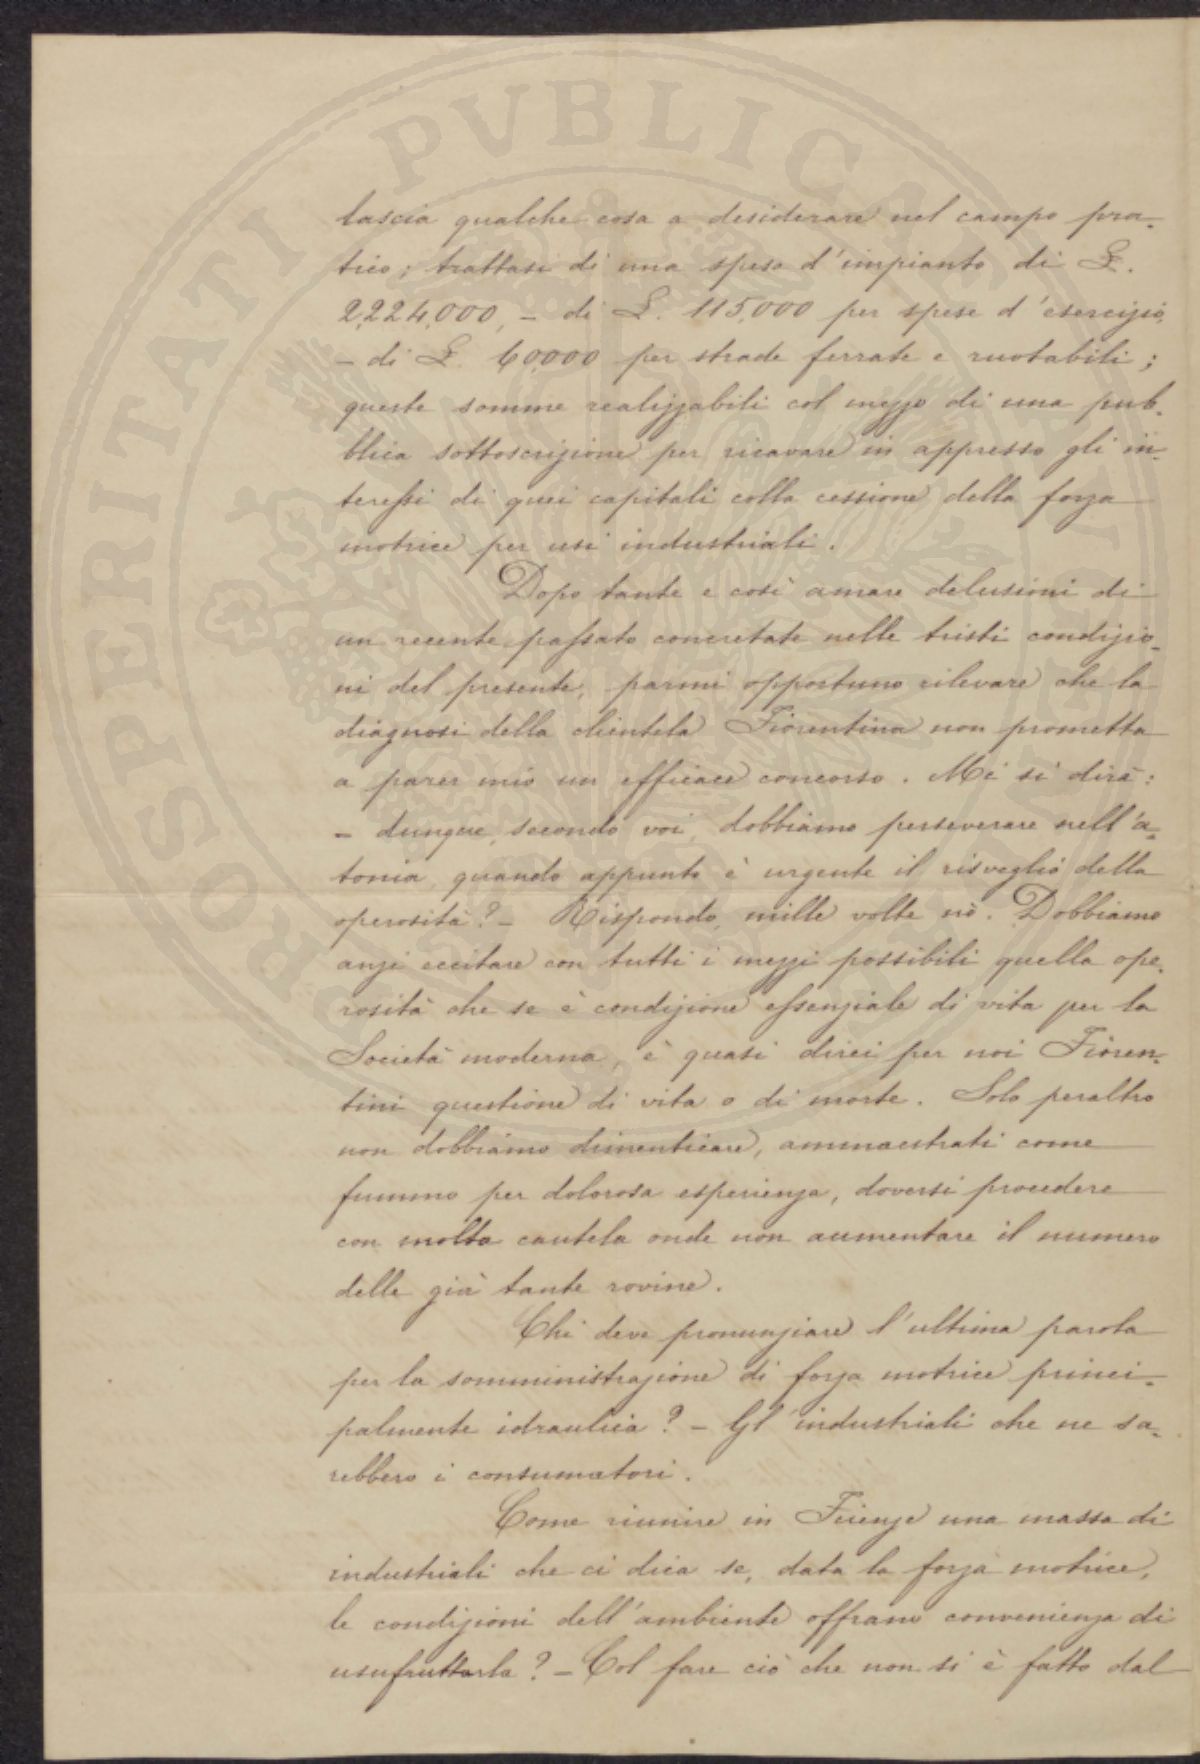 lascia qualche cosa a desiderare nel campo pra-
tico; trattasi di una spesa d'impianto di £.
2,224,000, - di £. 115,000 per spese d'esercizio,
- di £. 60,000 per strade ferrate e ruotabili;
queste somme realizzabili col mezzo di una pub-
blica sottoscrizione per ricavare in appresso gli in-
teressi di quei capitali colla cessione della forza
motrice per usi industriali.
Dopo tante e così amare delusioni di
un recente passato concretate nelle tristi condizio-
ni del presente, parmi opportuno rilevare che la
diagnosi della clientela Fiorentina non prometta
a parer mio un efficace concorso. Mi si dirà:
- dunque, secondo voi, dobbiamo perseverare nell'a-
tonia, quando appunto è urgente il risveglio della
operosità? - Rispondo, mille volte nò. Dobbiamo
anzi eccitare con tutti i mezzi possibili quella ope-
rosità che se è condizione essenziale di vita per la
Società moderna, è quasi direi per noi Fioren-
tini questione di vita o di morte. Solo peraltro
non dobbiamo dimenticare, ammaestrati come
fummo per dolorosa esperienza, doversi procedere
con molta cautela onde non aumentare il numero
delle già tante rovine.
Chi deve pronunziare l'ultima parola
per la somministrazione di forza motrice princi-
palmente idraulica? - Gl'industriali che ne sa-
rebbero i consumatori.
Come riunire in Firenze una massa di
industriali che ci dica se, data la forza motrice,
le condizioni dell'ambiente offrano convenienza di
usufruttarla? - Col fare ciò che non si è fatto dal
PROSPERITATI PVBLICAE